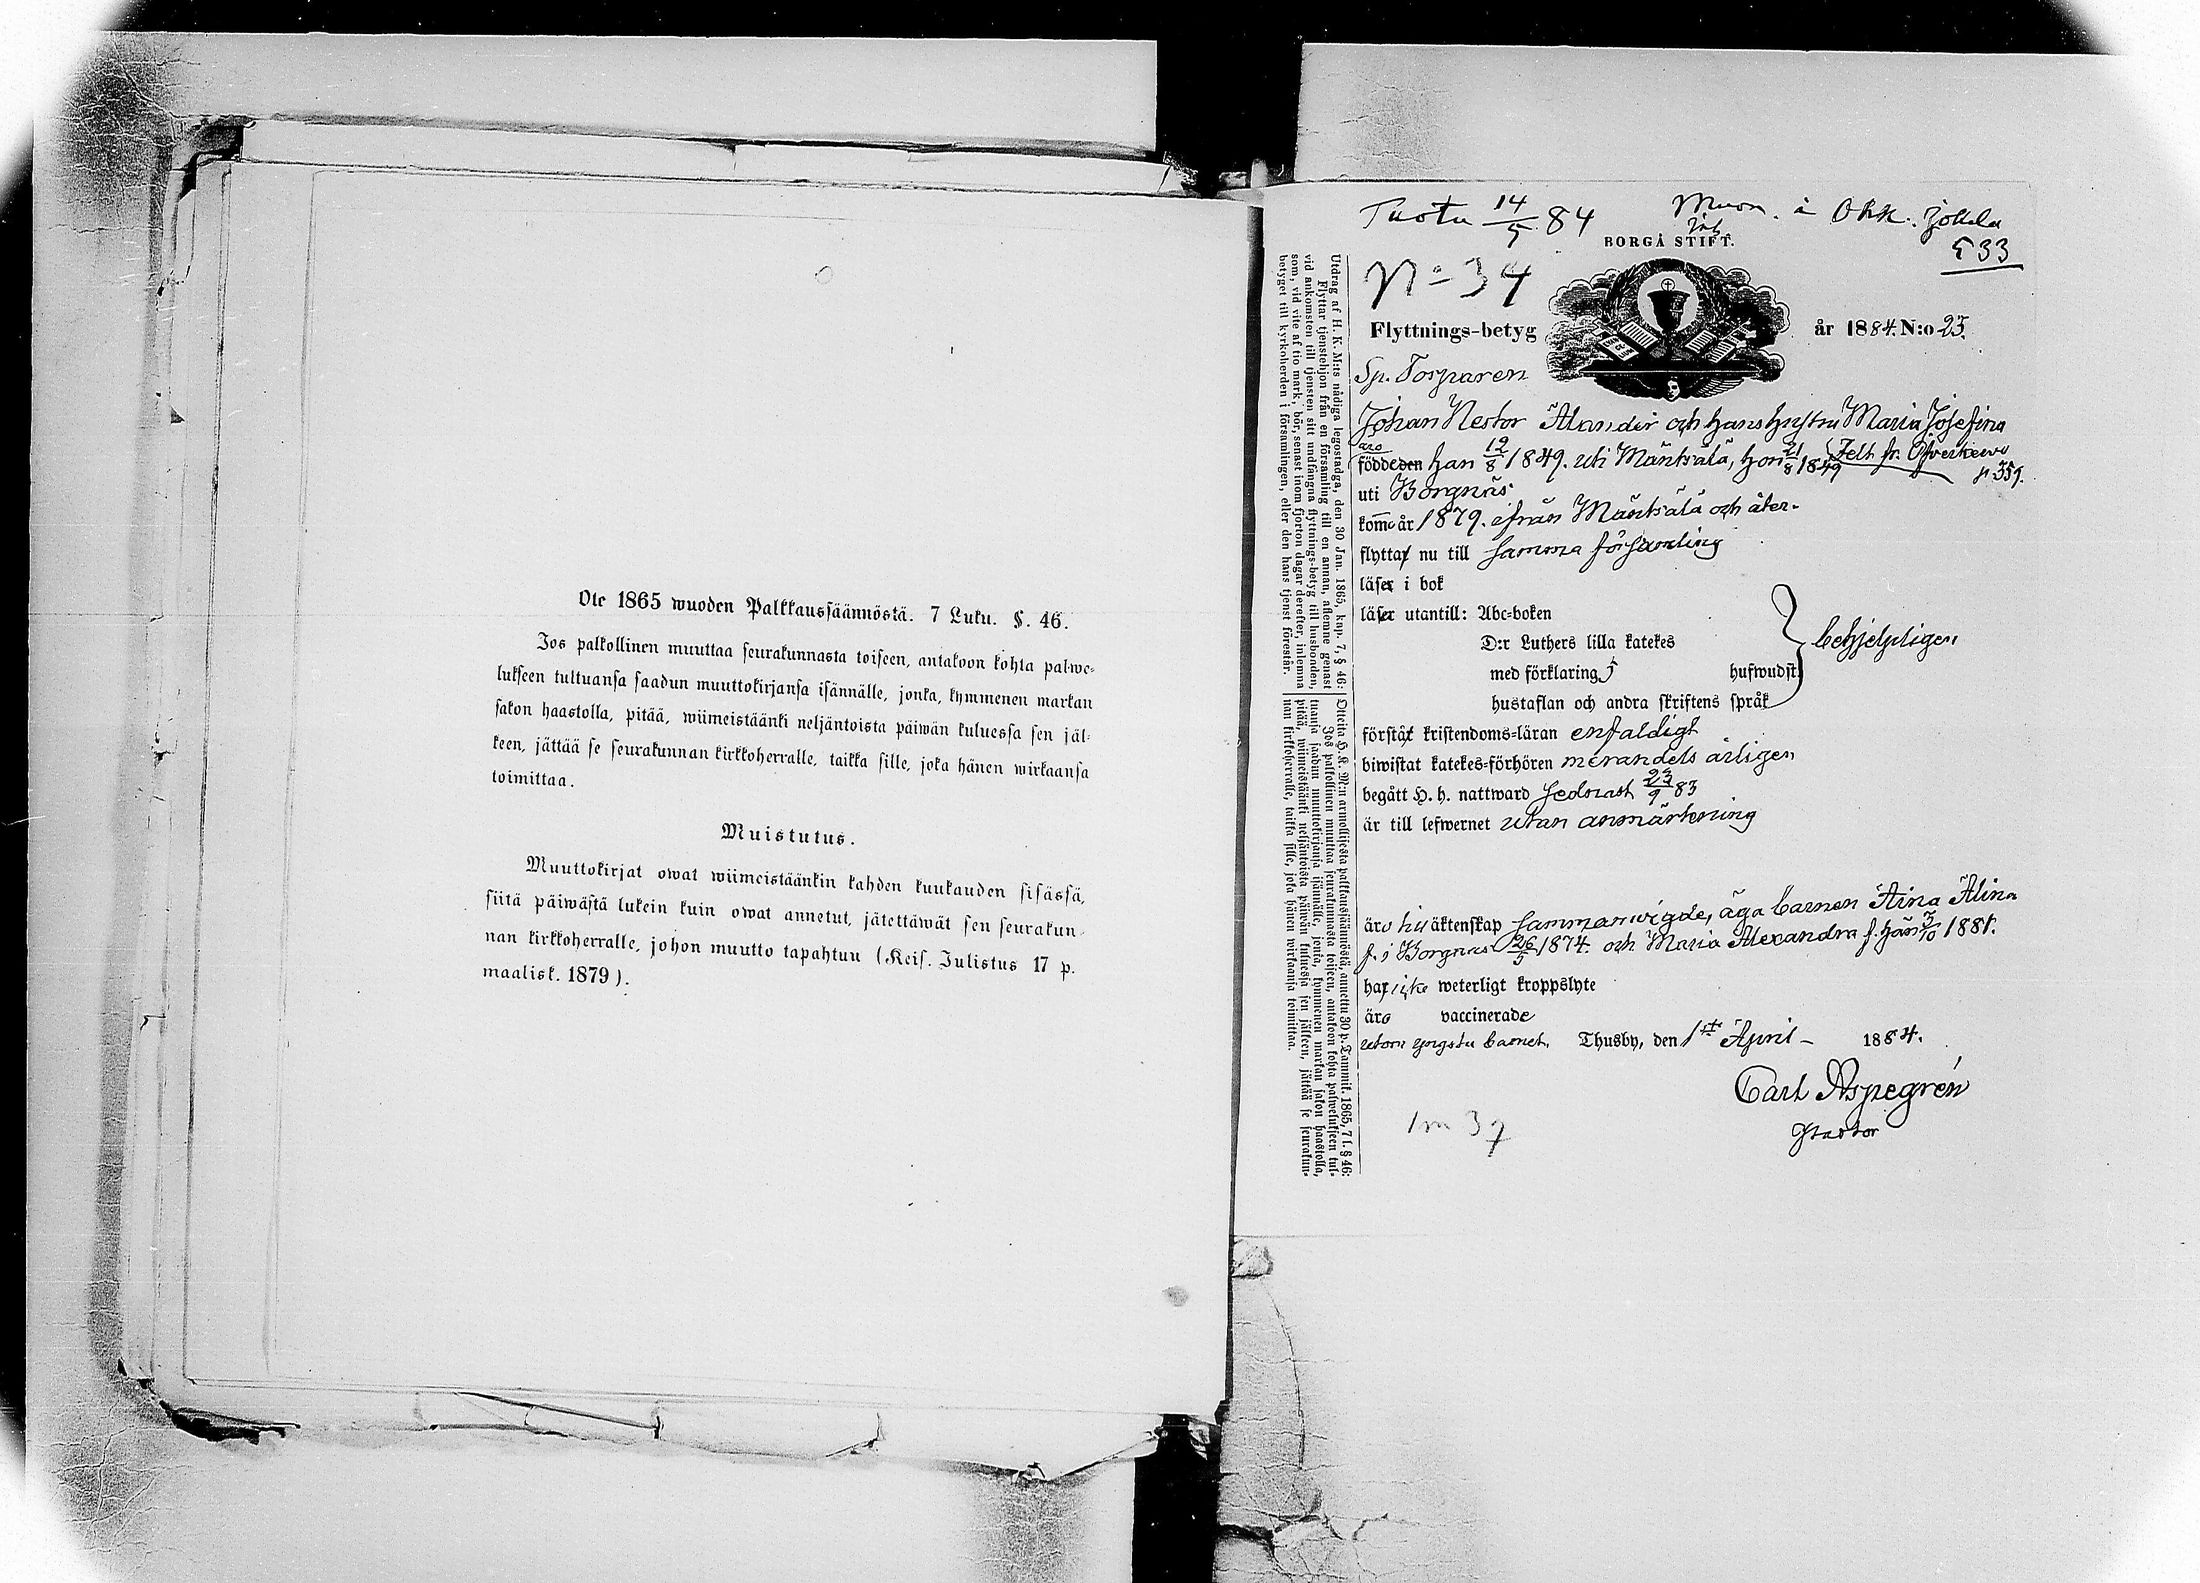 Ote 1865 wuoden Palkkaussäännöstä. 7 Luku. §. 46.
Jos palkollinen muuttaa seurakunnasta toiseen, antakoon kohta palwe-
lukseen tultuansa saadun muuttokirjansa isännälle, jonka, kymmenen markan
sakon haastolla, pitää, wiimeistäänki neljäntoista päiwän kuluessa sen jäl-
keen, jättää se seurakunnan kirkkoherralle, taikka sille, joka hänen wirkaansa
toimittaa.
Muistutus.
Muuttokirjat owat wiimeistäänkin kahden kuukauden sisässä,
siitä päiwästä lukein kuin owat annetut, jätettäwät sen seurakun-
nan kirkkoherralle, johon muutto tapahtuu (Keis. Julistus 17 p.
maalisk. 1879).
Tuotu 14/5 84
533
BORGÅ STIFT.
N:o 34
Flyttnings-betyg år 1884. N:o 23.
Sp. Torparen
Johan Nestor Alander och hans hustru Maria Josefina
äro födde den han 12/8 1849. uti Mäntsälä, hon 21/8 1849
p 359.
uti Borgnäs
komo år 1879. ifrån Mäntsälä och åter-
flytta nu till samma församling
läsa i bok
läsa utantill: Abc-boken
D:r Luthers lilla katekes
med förklaring hufwudst. behjelpligen
hustaflan och andra skriftens språk
förstå kristendoms-läran enfaldigt
biwistat katekes-förhören merandels årligen
begått H. h. nattward sednast 23/9 83
är till lefwernet utan anmärkning
äro till äktenskap sammanvigde, äga barnen Aina Alina
f. i Borgnäs 26/5 1874. och Maria Alexandra f. här 3/10 1881.
ha icke weterligt kroppslyte
äro vaccinerade
utom yngsta barnet. Thusby, den 1st April 1884.
Carl Aspegrén
Pastor
Utdrag af H. K. M:ts nådiga legostadga, den 30 Jan. 1865, kap. 7, § 46:
Flyttar tjenstehjon från en församling till en annan, aflemne genast
vid ankomsten till tjensten sitt undfångna flyttnings-betyg till husbonden,
som, vid vite af tio mark, bör, senast inom fjorton dagar derefter, inlemna
betyget till kyrkoherden i församlingen, eller den hans tjenst förestår.
Otteita H. K. M:n armollisesta palkkaussäännöstä, annettu 30 p. Tammik. 1865, 7 l. § 46:
Jos palkollinen muuttaa seurakunnasta toiseen, antakoon kohta palwelukseen tul-
tuansa saadun muuttokirjansa isännälle, jonka, kymmenen markan sakon haastolla,
pitää, wiimeistäänki neljäntoista päiwän kuluessa sen jälkeen, jättää se seurakun-
nan kirkkoherralle, taikka sille, joka hänen wirkaansa toimittaa.